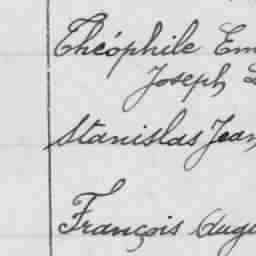 Théophile Em
Joseph
Stanislas Jean
François Augu